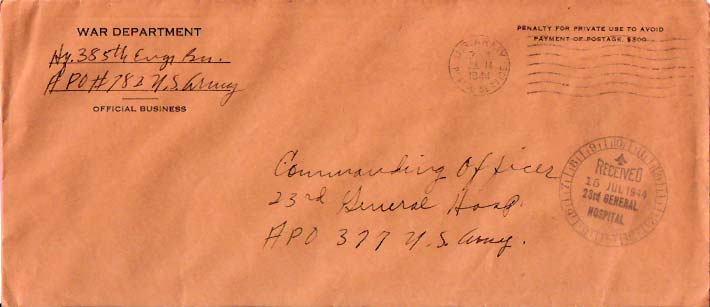 WAR DEPARTMENT
Hq. 385th Engr Bn.
APO # 782 U.S. Army
OFFICIAL BUSINESS
PENALTY FOR PRIVATE USE TO AVOID
PAYMENT OF POSTAGE, $300
U.S. ARMY
JUL 14
1944
POSTAL SERVICE
Commanding Officer
23rd General Hosp.
APO 377 U.S. Army.
RECEIVED
15 JUL 1944
23rd GENERAL
HOSPITAL